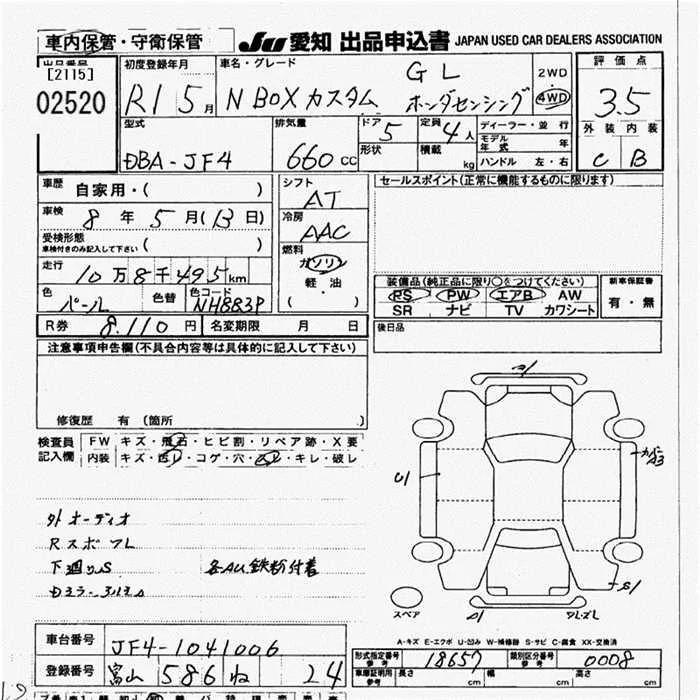 車内保管・守衛保管 JU 愛知 出品申込書 JAPAN USED CAR DEALERS ASSOCIATION
出品番号 [2115] 02520
初度登録年月 R1 5月
車名・グレード N BOXカスタム GL ホンダセンシング
2WD 4WD
評価点 3.5
外装 内装 C B
型式 DBA-JF4
排気量 660 CC
ドア 5 形状
定員 4人 積載 kg
ディーラー・並行
モデル年式 年
ハンドル 左・右
車歴 自家用・( )
車検 8年5月(13日)
受検形態 車検付きのみ記入して下さい ( )
走行 10万8千495km
色 パール 色替 色コード NH883P
シフト AT
冷房 AAC
燃料 ガソリン 軽油 ( ・ )
セールスポイント(正常に機能するものに限ります)
装備品(純正品に限り○をつけてください)
PS PW エアB AW
SR ナビ TV カワシート
新車保証書 有・無
R券 8.110円 名変期限 月 日
後日品
注意事項申告欄(不具合内容等は具体的に記入して下さい)
修復歴 有 (箇所 .)
検査員記入欄
FW キズ・飛石・ヒビ割・リペア跡・X要
内装 キズ・汚レ・コゲ・穴・スレ・キレ・破レ
外オーディオ
下廻りS 各AU鉄粉付着
U1
カバーA3
S1
スペア
A-キズ E-エクボ U-凹み W-補修跡 S-サビ C-腐食 XX-交換済
車台番号 JF4-1041006
登録番号 富山 586 ね 24
形式指定番号 参考 18657 類別区分番号 参考 0008
車庫証明用 参考 長さ cm 幅 cm 高さ cm